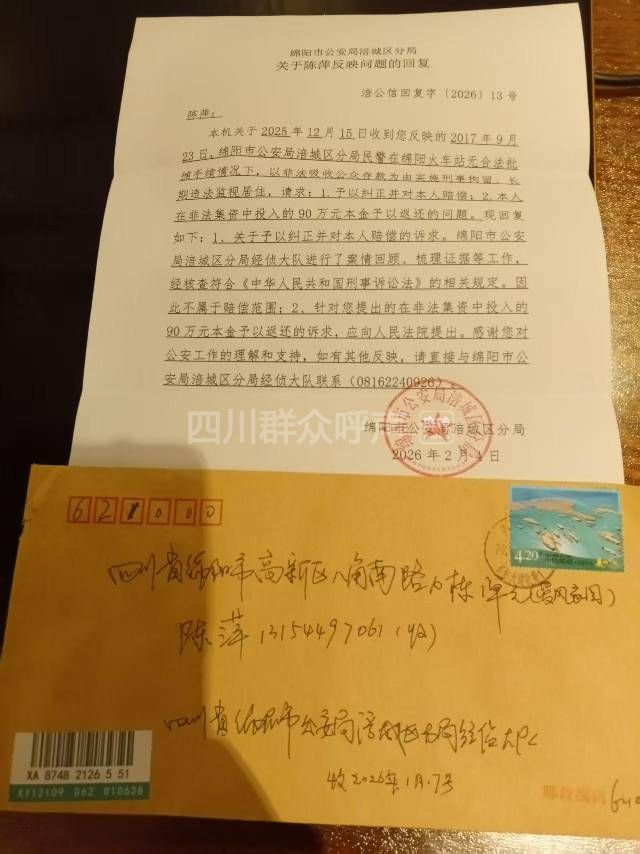 绵阳市公安局涪城区分局
关于陈萍反映问题的回复
涪公信回复字〔2026〕13号
陈萍:
本机关于2025年12月15日收到您反映的2017年9月
23日,绵阳市公安局涪城区分局民警在绵阳火车站无合法批
捕手续情况下,以非法吸收公众存款为由实施刑事拘留、长
期违法监视居住,请求:1.予以纠正并对本人赔偿;2.本人
在非法集资中投入的90万元本金予以返还的问题。现回复
如下:1、关于予以纠正并对本人赔偿的诉求。绵阳市公安
局涪城区分局经侦大队进行了案情回顾、梳理证据等工作,
经核查符合《中华人民共和国刑事诉讼法》的相关规定。因
此不属于赔偿范围;2、针对您提出的在非法集资中投入的
90万元本金予以返还的诉求,应向人民法院提出。感谢您对
公安工作的理解和支持,如有其他反映,请直接与绵阳市公
安局涪城区分局经侦大队联系(08162240926)。
四川群众呼声
绵阳市公安局涪城区分局
2026年2月4日
621000
4.20
四川省绵阳市高新区八角南路 栋1单元
陈萍 13154497061(收)
四川省绵阳市公安局涪城区分局经侦大队
收2026年1月.7号
XA 8748 2126 5 51
XY12109 062 010628
邮政编码